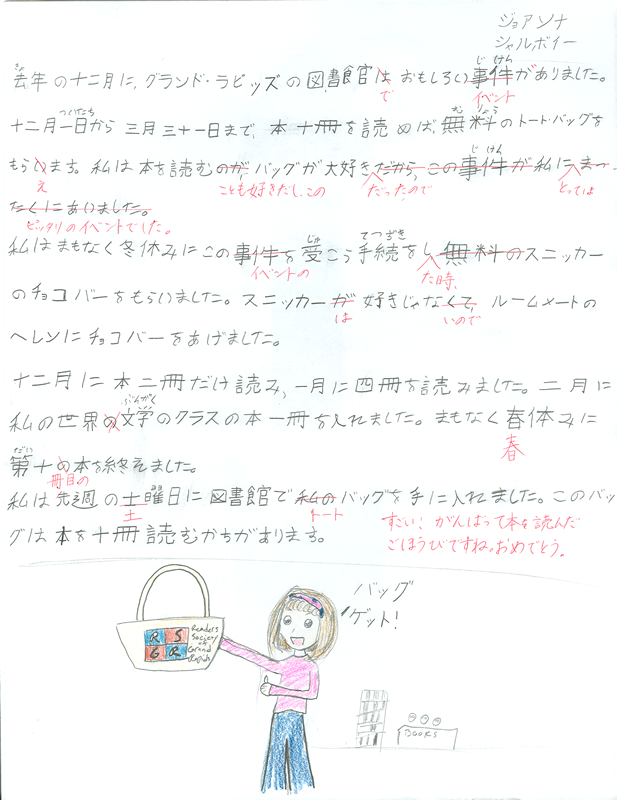 ジョアソナ
シャルボイー
きょ
じ けん
去年の十二月に、グランド・ラピッズの図書食官はおもしろい事件がありました。
で
イベント
ついたち
む りょう
十二月一日から三月三十一日まで、本十冊を読めば、無料のトートバッグを
じ けん
もらいます。私は本を読むのが、バッグが大好きだから、この事件が私にまっ
え
ことも好きだし、この
だったので
とっては
たくにあいました。
ピッタリのイベントでした。
じゅ
てつづき
私はまもなく冬休みにこの事件を受こう手続をし無料のスニッカー
イベントの
た時、
のチョコバーをもらいました。スニッカーが好きじゃなくて、ルームメートの
は
いので
ヘレンにチョコバーをあげました。
十二月に本二冊だけ読み、一月に四冊を読みました。二月に
ぶんがく
私の世界の文学のクラスの本一冊を入れました。まもなく春休みに
春
だい
第十の本を終えました。
冊目の
私は先週の土曜日に図書館で私のバッグを手に入れました。このバッ
土
トート
グは本を十冊読むかちがあります。
すごい!がんばって本を読んだ
ごほうびですね。おめでとう。
バッグ
ゲット!
R S
G R
Readers
Society
of
Grand
Rapids
BOOKS